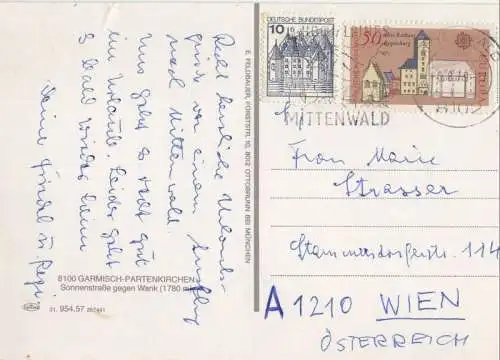 Recht herzliche Urlaubs-
grüße von einem Ausflug
nach Mittenwald.
Uns geht es sehr gut
im Urlaub. Leider geht
es bald wieder heim
Seine
u. Regi
8100 GARMISCH-PARTENKIRCHEN
Sonnenstraße gegen Wank (1780 m)
21. 954.57
E. FELDBAUER, FÜRSTSTR. 10, 8012 OTTOBRUNN BEI MÜNCHEN
DEUTSCHE BUNDESPOST
10
50
Altes Rathaus
EUROPA
MITTENWALD
Frau Marie
Strasser
114
A 1210 WIEN
ÖSTERREICH